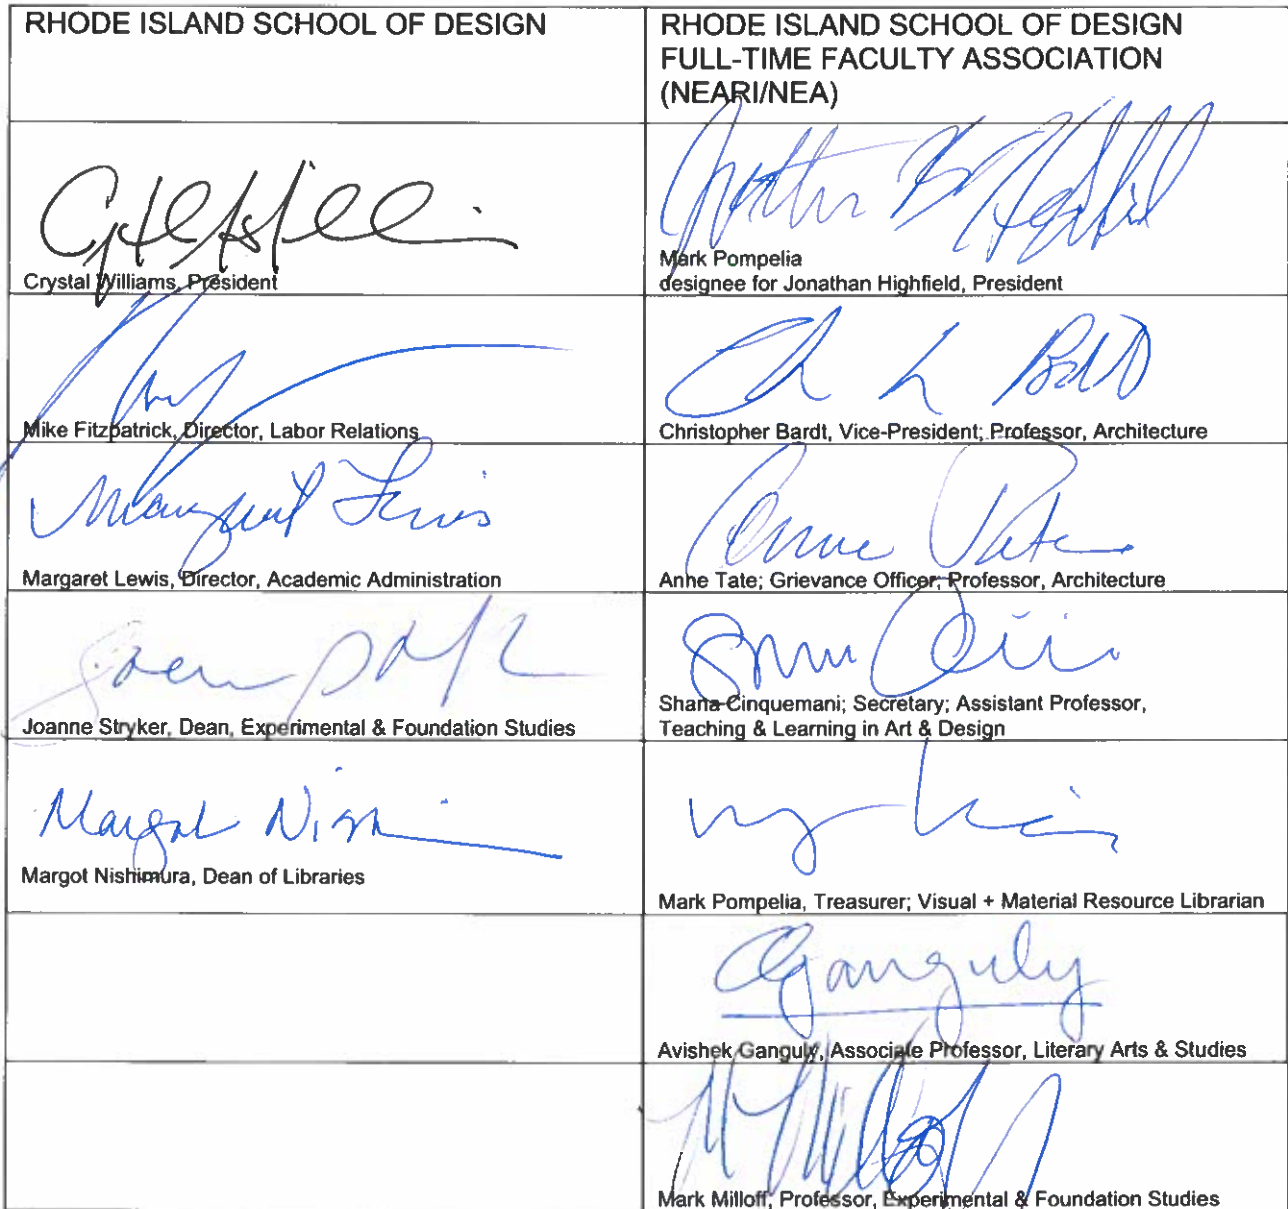 RHODE ISLAND SCHOOL OF DESIGN
RHODE ISLAND SCHOOL OF DESIGN
FULL-TIME FACULTY ASSOCIATION
(NEARI/NEA)
Crystal Williams, President
Mark Pompelia
designee for Jonathan Highfield, President
Mike Fitzpatrick, Director, Labor Relations
Christopher Bardt, Vice-President; Professor, Architecture
Margaret Lewis
Margaret Lewis, Director, Academic Administration
Anne Tate
Anne Tate; Grievance Officer; Professor, Architecture
Joanne Stryker, Dean, Experimental & Foundation Studies
Shana Cinquemani; Secretary; Assistant Professor,
Teaching & Learning in Art & Design
Margot
Margot Nishimura, Dean of Libraries
Mark Pompelia, Treasurer; Visual + Material Resource Librarian
AGanguly
Avishek Ganguly, Associate Professor, Literary Arts & Studies
Mark Milloff, Professor, Experimental & Foundation Studies